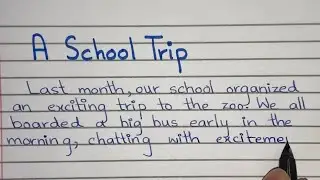 A School Trip
Last month, our school organized
an exciting trip to the zoo. We all
boarded a big bus early in the
morning, chatting with exciteme